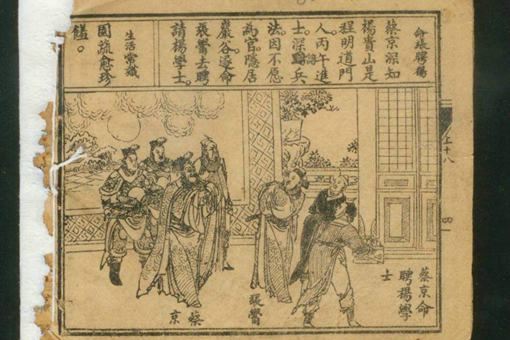 命張聘楊
蔡京深知
楊貴山是
程明道門
人丙午進
士深諳兵
法。因不愿
為官隱居
巖谷。遂命
張鸞去聘
請楊學士。
生活常識
園蔬愈珍
饈。
蔡京命
聘楊學
士
張鸞
蔡京
四